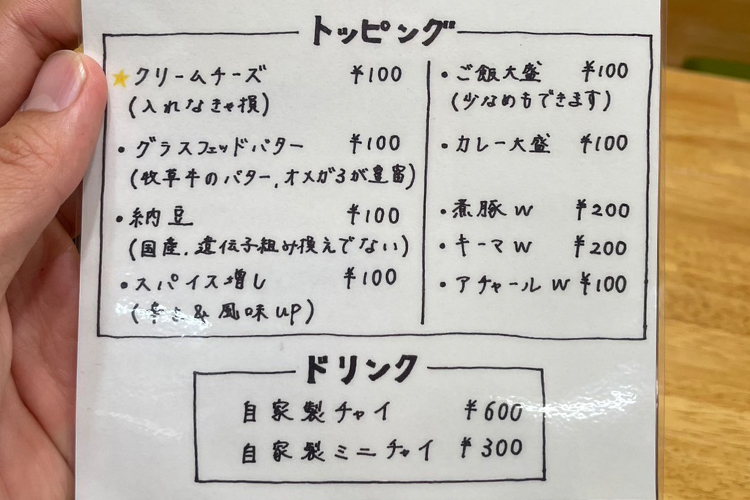 トッピング
★クリームチーズ ¥100
(入れなきゃ損)
・グラスフェッドバター ¥100
(牧草牛のバター,オメガ3が豊富)
・納豆 ¥100
(国産,遺伝子組み換えでない)
・スパイス増し ¥100
(辛さ&風味up)
・ご飯大盛 ¥100
(少なめもできます)
・カレー大盛 ¥100
・煮豚w ¥200
・キーマw ¥200
・アチャールw ¥100
ドリンク
自家製チャイ ¥600
自家製ミニチャイ ¥300